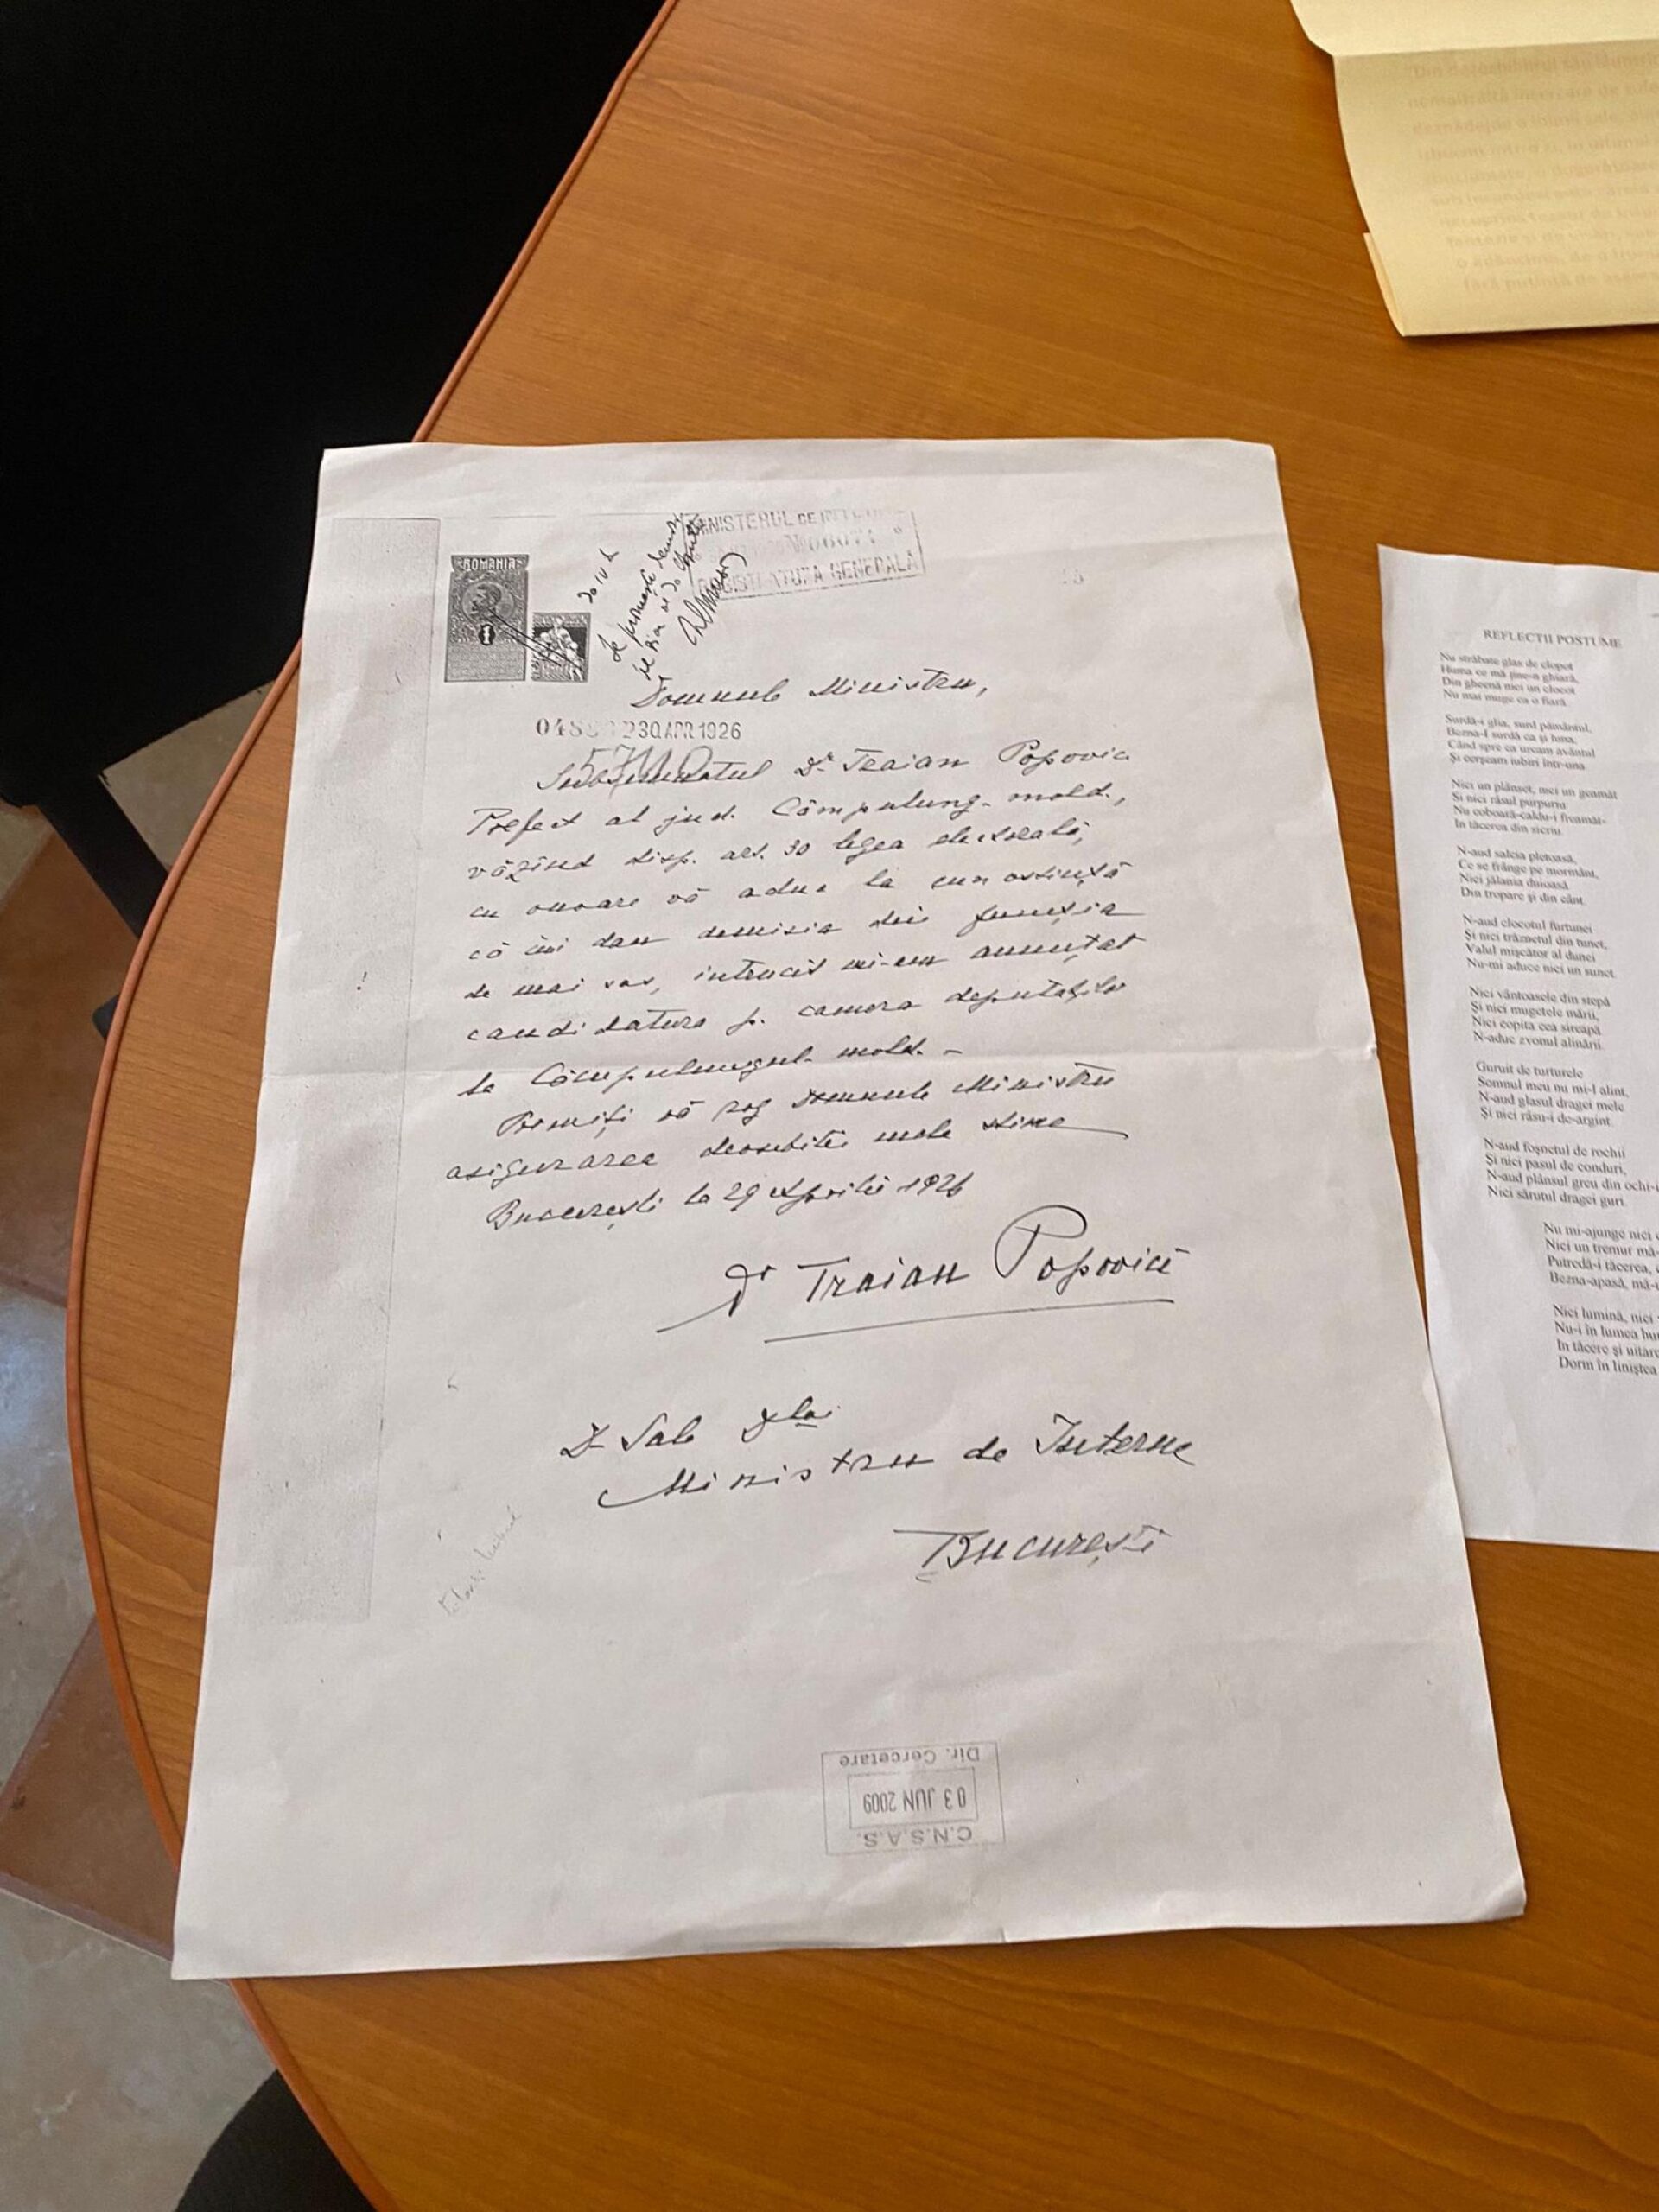 ROMANIA
MINISTERUL DE INTERNE
REGISTRATURA GENERALĂ
20 IV
Se primește demisia
pe ziua de 30 Aprilie
Domnule Ministru,
30 APR 1926
Subsemnatul Dr Traian Popovici
Prefect al jud. Câmpulung-mold.,
văzînd disp. art. 30 legea electorală,
cu onoare vă aduc la cunostință
că îmi dau demisia din funcția
de mai sus, intrucît mi-am anunțat
candidatura p. camera deputaților
la Câmpulungul mold. –
Primiți vă rog Domnule Ministru
asigurarea deosebitei mele stime
București la 29 Aprilie 1926
Dr Traian Popovici
D-Sale Dlui
Ministru de Interne
București
C.N.S.A.S.
03 JUN 2009
Dir. Cercetare
REFLECTII POSTUME
Nu străbate glas de clopot
Huma ce mă ține-n ghiară,
Din gheenă nici un clocot
Nu mai muge ca o fiară.
Surdă-i glia, surd pământul,
Bezna-I surdă ca și luna,
Când spre ea urcam avântul
Și cerșeam iubiri într-una.
Nici un plânset, nici un geamăt
Si nici râsul purpuriu
Nu coboară-caldu-i freamăt-
In tăcerea din sicriu.
N-aud salcia pletoasă,
Ce se frânge pe mormânt,
Nici jălania duioasă
Din tropare și din cânt.
N-aud clocotul furtunei
Și nici trăznetul din tunet,
Valul mișcător al dunei
Nu-mi aduce nici un sunet.
Nici vântoasele din stepă
Și nici mugetele mării,
Nici copita cea sireapă
N-aduc zvonul alinării.
Guruit de turturele
Somnul meu nu mi-l alint,
N-aud glasul dragei mele
Și nici râsu-i de-argint.
N-aud foșnetul de rochii
Și nici pasul de conduri,
N-aud plânsul greu din ochi-i
Nici sărutul dragei guri.
Nu mi-ajunge nici
Nici un tremur mă-
Putredă-i tăcerea,
Bezna-apasă, mă-
Nici lumină, nici
Nu-i în lumea
In tăcere și uitare
Dorm în liniștea